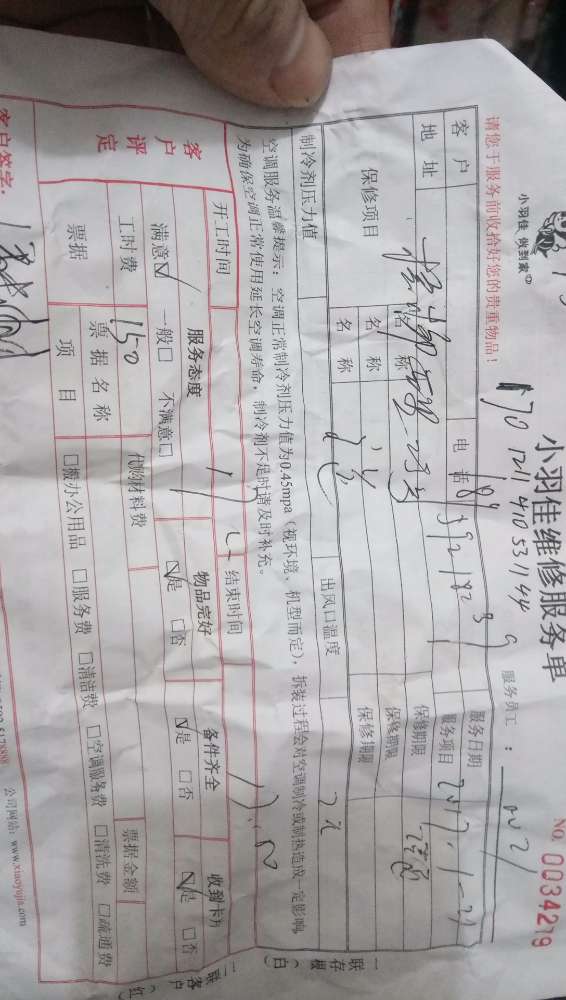 小羽佳 做到家
小羽佳维修服务单
NO. 0034219
170 1211 410 531144
服务员工:
请您于服务前收拾好您的贵重物品!
客户
电话
服务日期
2017.1-21
地址
服务项目
保修项目
名称
保修期限
名称
保修期限
名称
保修期限
制冷剂压力值
出风口温度
空调服务温馨提示:空调正常制冷剂压力值为0.45mpa(视环境、机型而定),拆装过程会对空调制冷或制热造成一定影响,
为确保空调正常使用延长空调寿命,制冷剂不足时请及时补充。
开工时间
结束时间
客户评定
服务态度
物品完好
备件齐全
收到卡
满意☑ 一般□ 不满意□
☑是 □否
☑是 □否
☑是 □否
工时费
150
代购材料费
票据
票据名称
票据金额
项目
□搬办公用品 □服务费 □清洁费 □空调服务费 □清洗费 □疏通费
客户签字:
公司网站:www.xiaoyujia.com
一联存根(白)
二联客户(红)